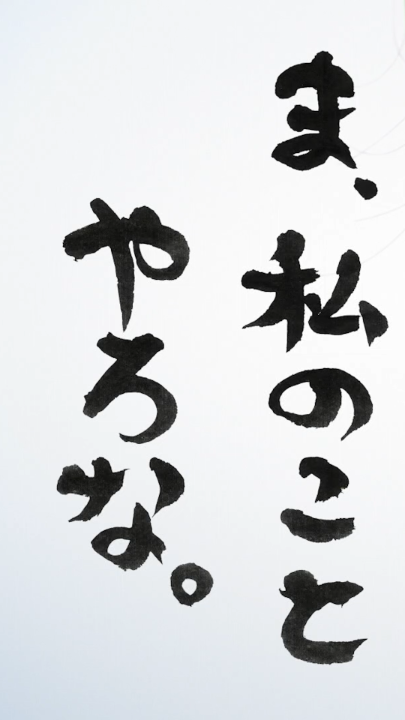 ま、私のこと
やろな。